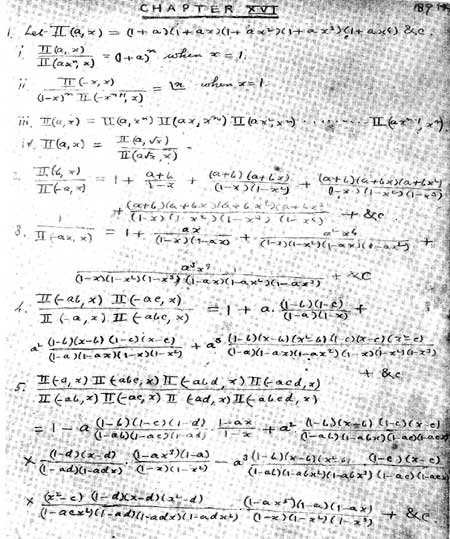 CHAPTER XVI
1. Let Π(a, x) = (1+a)(1+ax)(1+ax²)(1+ax³)(1+ax⁴) &c.
i. Π(a, x) / Π(axⁿ, x) = (1+a)ⁿ when x = 1.
ii. Π(-x, x) / (1-x)ⁿ Π(-xⁿ⁺¹, x) = |n when x = 1.
iii. Π(a, x) = Π(a, xⁿ) Π(ax, xⁿ) Π(ax², xⁿ) ......... Π(axⁿ⁻¹, xⁿ).
iv. Π(a, x) = Π(a, √x) / Π(a√x, x)
2. Π(b, x) / Π(-a, x) = 1 + (a+b)/(1-x) + (a+b)(a+bx)/(1-x)(1-x²) + (a+b)(a+bx)(a+bx²)/(1-x)(1-x²)(1-x³)
+ (a+b)(a+bx)(a+bx²)(a+bx³)/(1-x)(1-x²)(1-x³)(1-x⁴) + &c
3. 1 / Π(-ax, x) = 1 + ax/(1-x)(1-ax) + a²x⁴/(1-x)(1-x²)(1-ax)(1-ax²) +
a³x⁹/(1-x)(1-x²)(1-x³)(1-ax)(1-ax²)(1-ax³) + &c
4. Π(-ab, x) Π(-ac, x) / Π(-a, x) Π(-abc, x) = 1 + a. (1-b)(1-c)/(1-a)(1-x) +
a² (1-b)(x-b)(1-c)(x-c)/(1-a)(1-ax)(1-x)(1-x²) + a³ (1-b)(x-b)(x²-b)(1-c)(x-c)(x²-c)/(1-a)(1-ax)(1-ax²)(1-x)(1-x²)(1-x³)
+ &c
5. Π(-a, x) Π(-abc, x) Π(-abd, x) Π(-acd, x) / Π(-ab, x) Π(-ac, x) Π(-ad, x) Π(-abcd, x)
= 1 - a (1-b)(1-c)(1-d)/(1-ab)(1-ac)(1-ad) . (1-ax)/(1-x) + a² (1-b)(x-b)(1-c)(x-c)/(1-ab)(1-abx)(1-ac)(1-acx)
× (1-d)(x-d)/(1-ad)(1-adx) . (1-ax³)(1-a)/(1-x)(1-x²) - a³ (1-b)(x-b)(x²-b)/(1-ab)(1-abx)(1-abx²) (1-c)(x-c)/(1-ac)(1-acx)
× (x²-c)(1-d)(x-d)(x²-d)/(1-acx²)(1-ad)(1-adx)(1-adx²) . (1-ax⁵)(1-a)(1-ax)/(1-x)(1-x²)(1-x³) + &c.